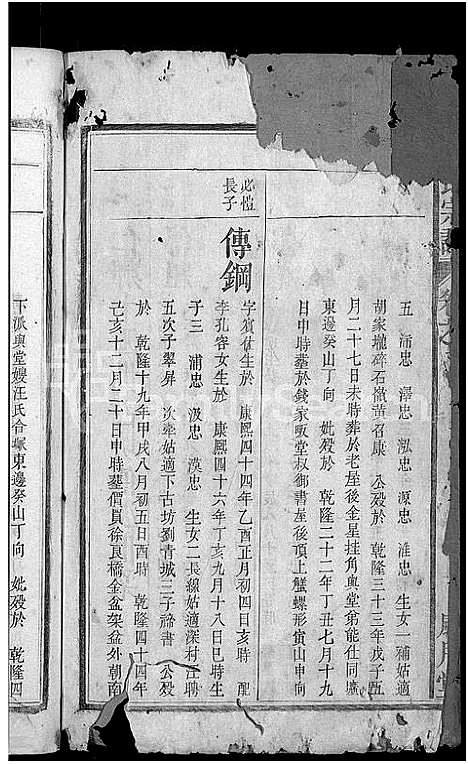 五 浦忠 澤忠 泓忠 源忠 淮忠 生女一補姑適
胡家壠碎石嶺董召康 公殁於 乾隆三十三年戊子五
月二十七日未時葬於老屋後金星挂角與堂翁能仕同壙
東邊癸山丁向 妣殁於 乾隆二十二年丁丑七月十九
日申時葬於錢家畈堂叔御書屋後頂上蟹螺形寅山申向
此愷
長子
傳鋼
字 生於 康熙四十四年乙酉正月初四日亥時 配
李孔容女生於 康熙四十六年丁亥九月十八日巳時生
子三 浦忠 汲忠 漢忠 生女二長線姑適深村汪聘
五次子翠屏 次 姑適下古坊劉青城三子 書 公殁
於 乾隆十九年甲戌八月初五日酉時 乾隆四十四年
己亥十二月二十日申時葬價買徐良橋金盆架盆外朝南
下派與堂嫂汪氏合塚東邊癸山丁向 妣殁於 乾隆四